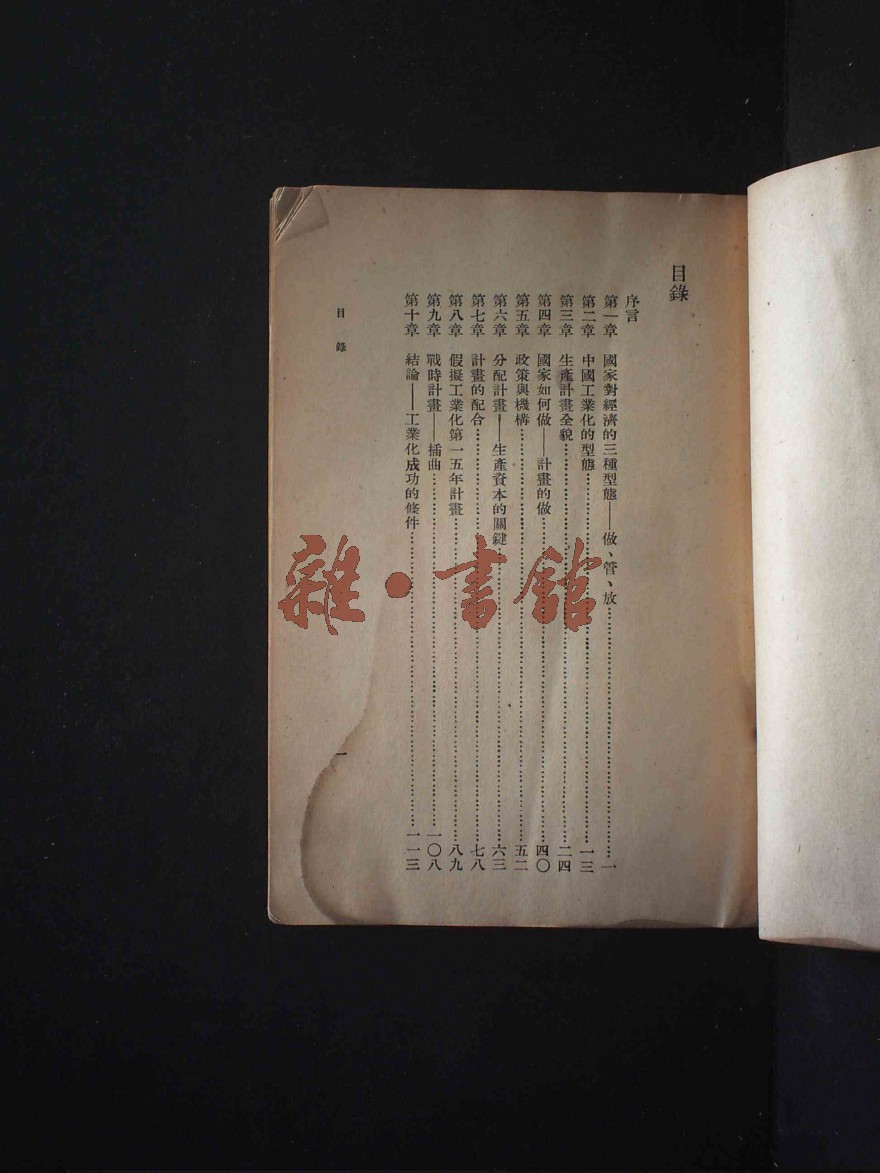 目錄
序言
第一章 國家對經濟的三種型態——做、管、放……一
第二章 中國工業化的型態……一三
第三章 生產計畫全貌……二四
第四章 國家如何做——計畫的做……四〇
第五章 政策與機構……五二
第六章 分配計畫——生產資本的關鍵……六三
第七章 計畫的配合……七八
第八章 假擬工業化第一五年計畫……八九
第九章 戰時計畫——插曲……一〇八
第十章 結論——工業化成功的條件……一一三
目錄 一
雜·書館